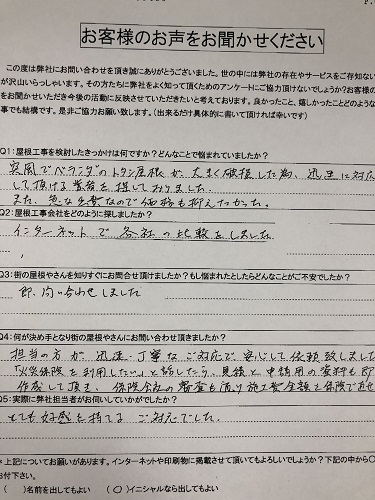 お客様のお声をお聞かせください
この度は弊社にお問い合わせを頂き誠にありがとうございました。世の中には弊社の存在やサービスをご存知ない
が沢山いらっしゃいます。その方たちに弊社をよく知って頂くためのアンケートにご協力頂けないでしょうか?お客様の
をお聞かせいただき今後の活動に反映させていただきたいと考えております。良かったこと、嬉しかったことどのような
事でも結構です。是非ご協力お願い致します。(出来るだけ具体的に書いて頂ければ幸いです)
Q1:屋根工事を検討したきっかけは何ですか?どんなことで悩まれていましたか?
突風でベランダのトタン屋根が大きく破損した為、迅速に対応
して頂ける業者を探しておりました。
また、急な出費なので価格も抑えたかった。
Q2:屋根工事会社をどのように探しましたか?
インターネットで各社の比較をしました
Q3:街の屋根やさんを知りすぐにお問合せ頂けましたか?もし悩まれたとしたらどんなことがご不安でしたか?
即、問い合わせしました
Q4:何が決め手となり街の屋根やさんにお問い合わせ頂きましたか?
担当の方が迅速・丁寧なご対応で、安心して依頼致しました
「火災保険を利用したい」と話したら、見積と申請用の資料も即
作成して頂き、保険会社の審査も通り施工費全額を保険で
Q5:実際に弊社担当者がお伺いしていかがでしたか?
とても好感を持てるご対応でした。
*上記についてお願いがあります。インターネットや印刷物に掲載させて頂いてもよろしいでしょうか?下記の中から○
お付下さい。
( )名前を出してもよい (○)イニシャルなら出してもよい